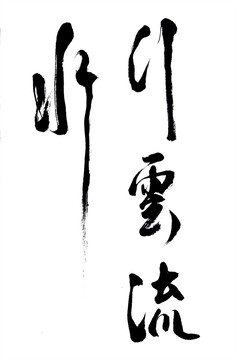 行雲流
水